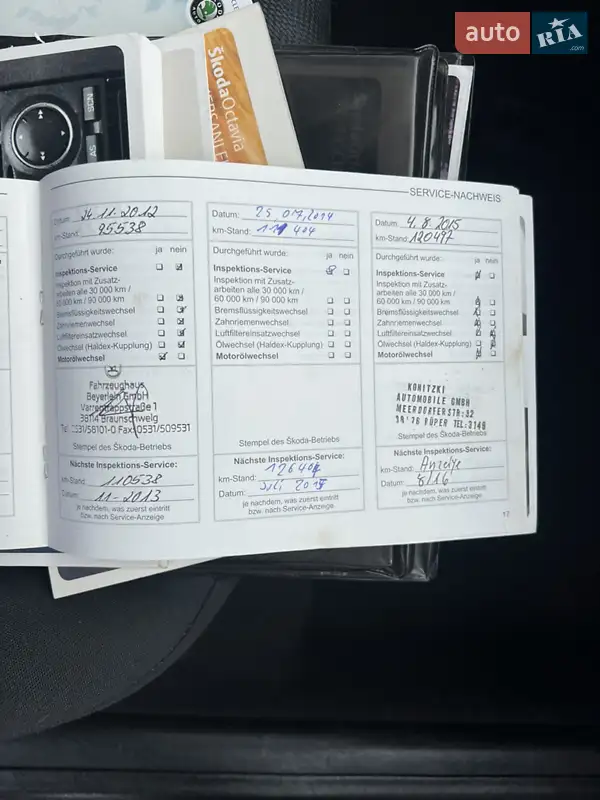 auto RIA .com
SCN
AS
ŠkodaOctavia
SERVICE-NACHWEIS
Datum: 24.11.2012
km-Stand: 95538
Durchgeführt wurde: ja nein
Inspektions-Service
Inspektion mit Zusatz-
arbeiten alle 30 000 km /
60 000 km / 90 000 km
Bremsflüssigkeitswechsel
Zahnriemenwechsel
Luftfiltereinsatzwechsel
Ölwechsel (Haldex-Kupplung)
Motorölwechsel
Fahrzeughaus
Beyerlein GmbH
Varrentrappstraße 1
38114 Braunschweig
Tel. 0531/58101-0 Fax 0531/509531
Stempel des Škoda-Betriebs
Nächste Inspektions-Service:
km-Stand: 110538
Datum: 11-2013
je nachdem, was zuerst eintritt
bzw. nach Service-Anzeige
Datum: 25 07,2014
km-Stand: 111 404
Durchgeführt wurde: ja nein
Inspektions-Service
Inspektion mit Zusatz-
arbeiten alle 30 000 km /
60 000 km / 90 000 km
Bremsflüssigkeitswechsel
Zahnriemenwechsel
Luftfiltereinsatzwechsel
Ölwechsel (Haldex-Kupplung)
Motorölwechsel
Stempel des Škoda-Betriebs
Nächste Inspektions-Service:
km-Stand: 12640
Datum:
je nachdem, was zuerst eintritt
bzw. nach Service-Anzeige
Datum: 4.8.2015
km-Stand: 120497
Durchgeführt wurde: ja nein
Inspektions-Service
Inspektion mit Zusatz-
arbeiten alle 30 000 km /
60 000 km / 90 000 km
Bremsflüssigkeitswechsel
Zahnriemenwechsel
Luftfiltereinsatzwechsel
Ölwechsel (Haldex-Kupplung)
Motorölwechsel
KONITZKI
AUTOMOBILE GMBH
MEERDORFER STR: 32
RÜPER TEL: 3146
Stempel des Škoda-Betriebs
Nächste Inspektions-Service:
km-Stand: Anzeige
Datum: 8/16
je nachdem, was zuerst eintritt
bzw. nach Service-Anzeige
17